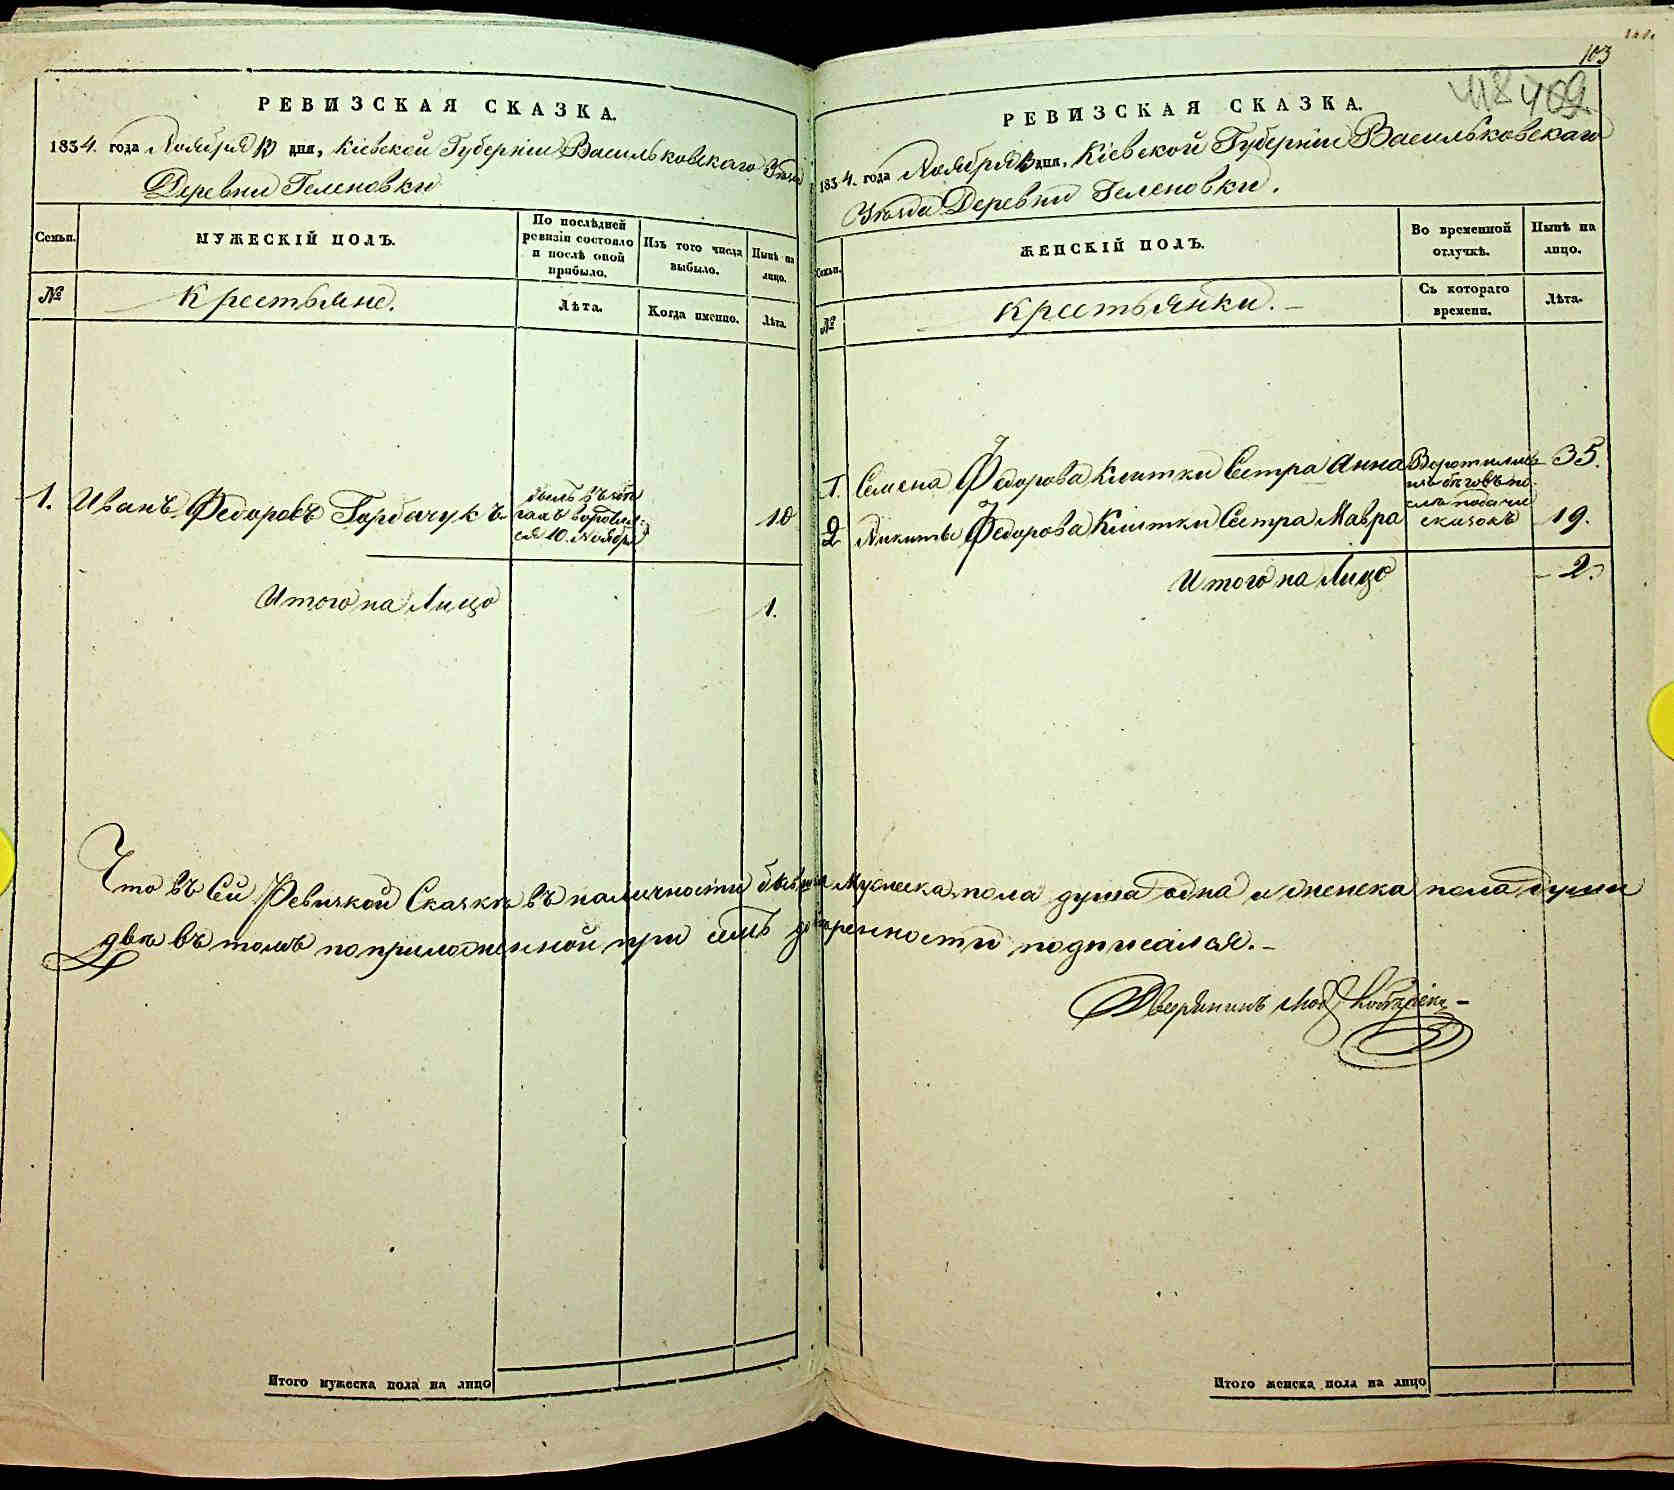 103
РЕВИЗСКАЯ СКАЗКА.
1834. года Ноября 13 дня, Кіевской Губерніи Васильковскаго Уѣзда
Деревни Геленовки
Семьи.
МУЖЕСКІЙ ПОЛЪ.
По послѣдней
ревизіи состояло
и послѣ оной
прибыло.
Изъ того числа
выбыло.
Нынѣ на
лицо.
№
Крестьяне.
Лѣта.
Когда именно.
Лѣта.
1. Иванъ Федоровъ Горбачукъ
былъ въ бѣ
гахъ воротил
ся 10. Ноября
10
Итого на Лицо
1.
РЕВИЗСКАЯ СКАЗКА.
1834. года Ноября 13 дня, Кіевской Губерніи Васильковскаго
Уѣзда Деревни Геленовки.
Семьи.
ЖЕНСКІЙ ПОЛЪ.
Во временной
отлучкѣ.
Нынѣ на
лицо.
№
Крестьянки.
Съ котораго
времени.
Лѣта.
1. Семена Федорова Сестра Анна
35.
2 Никиты Федорова Сестра Мавра
19.
Воротились
изъ бѣговъ по
слѣ подачи
сказокъ
Итого на Лицо
2.
Что въ Сей Ревизкой Сказкѣ въ наличности мужеска пола душа одна и женска пола души
двѣ въ томъ по приложенной при семъ довѣренности подписался.
Дворянинъ
Итого мужеска пола на лицо
Итого женска пола на лицо